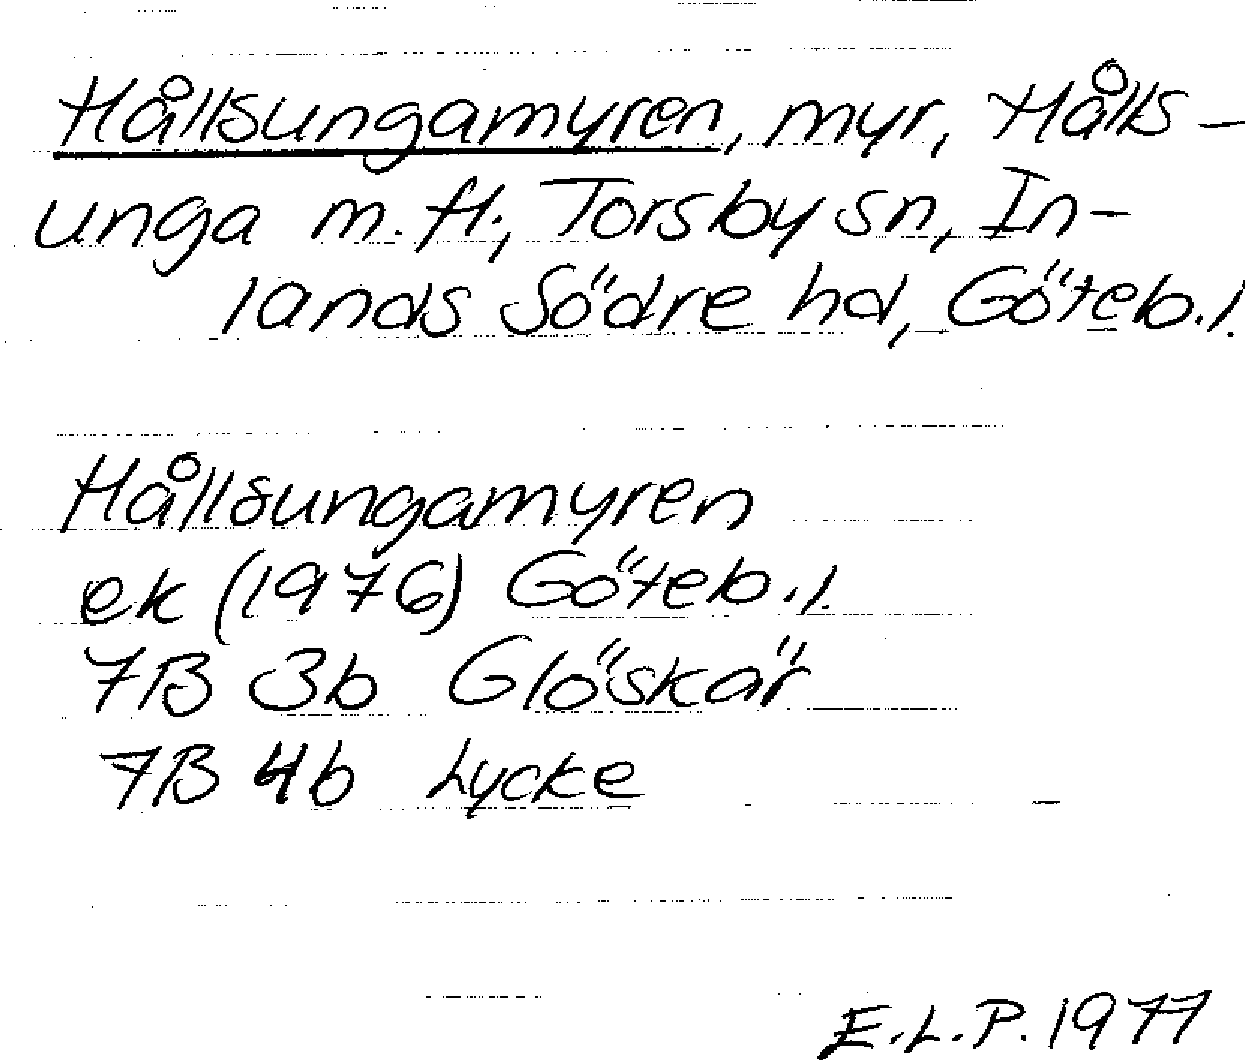 Hållsungamyren, myr, Hålls-
unga m. fl., Torsby sn, In-
lands Södre hd, Göteb. l.
Hållsungamyren
ek (1976) Göteb. l.
7B 3b Glöskär
7B 4b Lycke
E.L.P. 1977